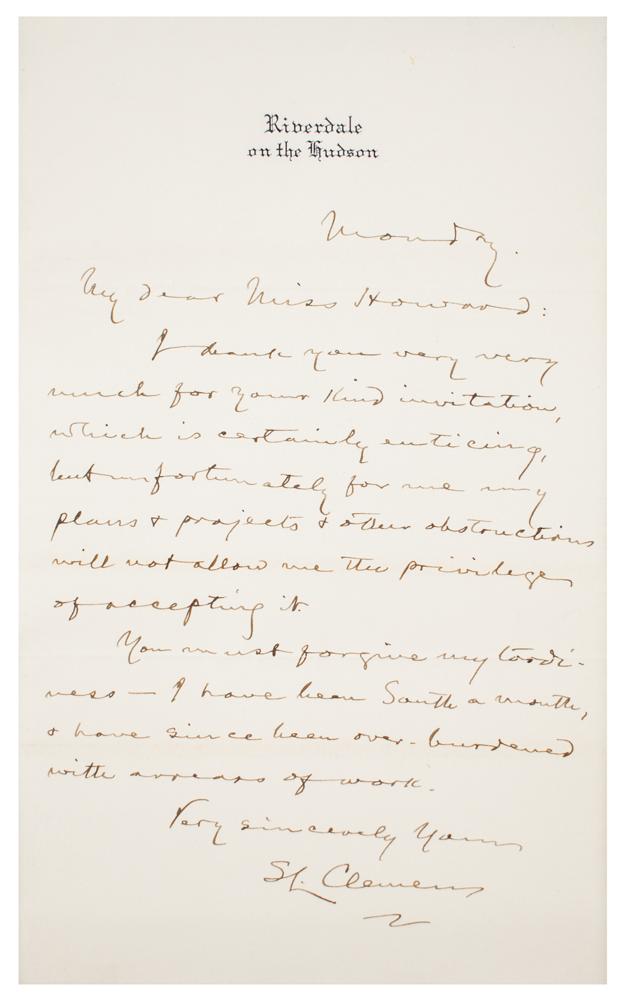 Riverdale
on the Hudson
Monday.
My dear Miss Howard:
I thank you very very
much for your kind invitation,
which is certainly enticing,
but unfortunately for me my
plans & projects & other obstructions
will not allow me the privilege
of accepting it.
You must forgive my tardi-
ness — I have been South a month,
& have since been over-burdened
with arrears of work.
Very sincerely Yours
SL. Clemens